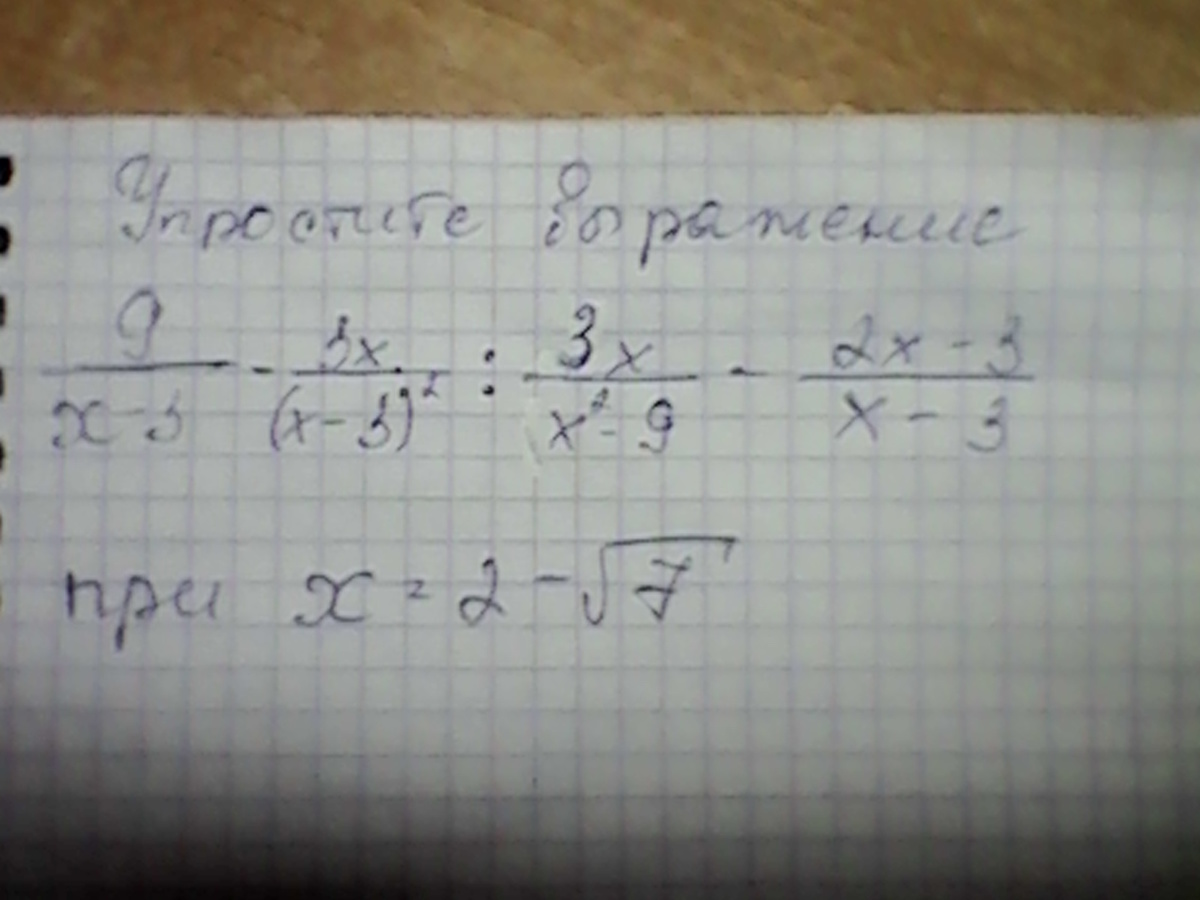 Упростите выражение
9/(x-3) - 3x/(x-3)² : 3x/(x²-9) - (2x-3)/(x-3)
при x = 2 - √7